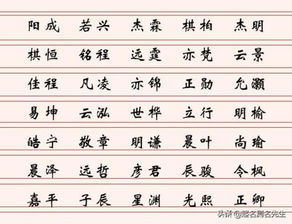 阳成 若兴 杰霖 棋柏 杰明
棋恒 铭程 远霆 亦梵 云景
佳程 凡凌 亦锦 正勋 允灏
易坤 云泓 世桦 立行 明榆
皓宁 敬章 明谦 晨叶 尚瑜
晨泽 远哲 彦君 辰骏 令枫
嘉平 子辰 星渊 光熙 正卿
头条 @起名周名先生